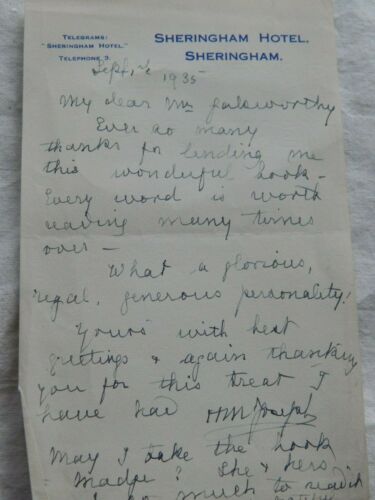 TELEGRAMS:
"SHERINGHAM HOTEL."
TELEPHONE 3.
SHERINGHAM HOTEL.
SHERINGHAM.
Sept. 1935
My dear Mrs Galsworthy
Ever so many
thanks for lending me
this wonderful book –
Every word is worth
many times
over –
What a glorious,
regal, generous personality!
Yours with best
greetings & again thanking
you for this treat I
have had HM Joseph
May I take the book
Madge? She & hers
much to read it